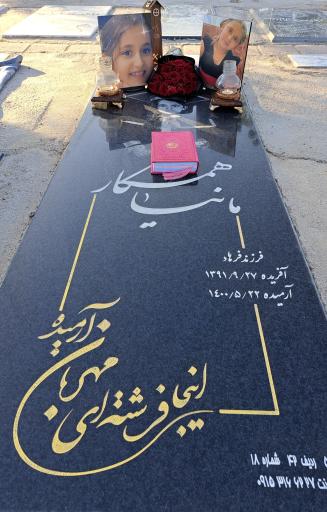 همکار
مانیا
فرزند فرهاد
آفریده ۱۳۹۱/۹/۲۷
آرمیده ۱۴۰۰/۵/۲۲
اینجا فرشته‌ای
مهربان
آرمیده
ردیف ۴۶ شماره ۱۸
۰۹۱۵ ۳۱۶ ۶۶۲۷